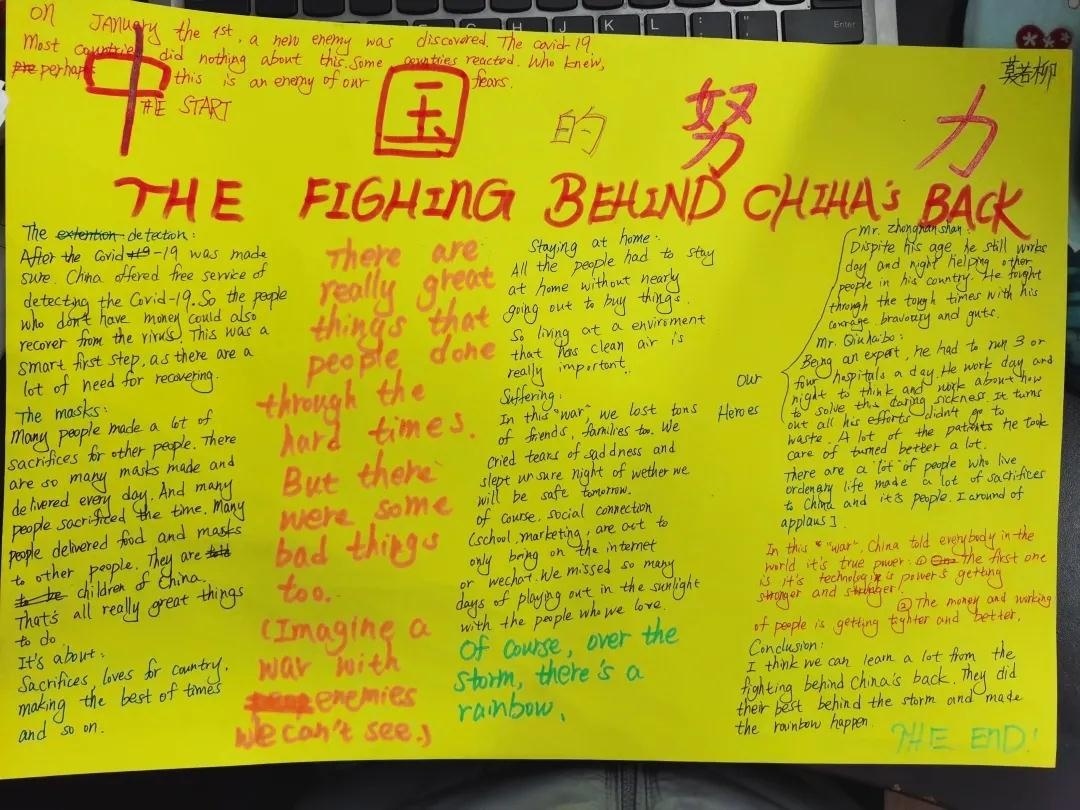 On JANUARY the 1st, a new enemy was discovered. The covid-19.
Most countries did nothing about this. Some countries reacted. Who knew,
perhaps this is an enemy of our fears.
THE START
莫若柳
中国的努力
THE FIGHING BEHIND CHIHA's BACK
The extention detection:
After the covid-19 was made
sure. China offered free service of
detecting the Covid-19. So the people
who don't have money could also
recover from the rivus. This was a
smart first step, as there are a
lot of need for recovering.
The masks:
Many people made a lot of
sacrifices for other people. There
are so many masks made and
delivered every day. And many
people sacrificed the time. Many
people delivered food and masks
to other people. They are
children of China.
That's all really great things
to do
It's about:
Sacrifices, loves for country,
making the best of times
and so on.
There are
really great
things that
people done
through the
hard times.
But there
were some
bad things
too.
(Imagine a
war with
enemies
we can't see.)
Staying at home:
All the people had to stay
at home without nearly
going out to buy things.
So living at a enviroment
that has clean air is
really important.
Suffering:
In this "war", we lost tons
of friends, families too. We
cried tears of saddness and
slept unsure night of wether we
will be safe tomorrow.
Of course, social connection
(school, marketing, are out to
only bring on the internet
or wechat. We missed so many
days of playing out in the sunlight
with the people who we love.
Of course, over the
storm, there's a
rainbow.
Our
Heroes
Mr. Zhongnanshan:
Dispite his age, he still works
day and night helping other
people in his country. He fought
through the tough times with his
courage, bravoury and guts.
Mr. Qiuhaibo:
Being an expert, he had to run 3 or
four hospitals a day. He work day and
night to think and work about how
to solve this sickness. It turns
out all his efforts didn't go to
waste. A lot of the patients he took
care of turned better a lot.
There are a "lot" of people who live
ordenery life made a lot of sacrifices
to China and it's people. [around of
applaus]
In this "war", China told everybody in the
world it's true power. ① The first one
is it's technologi power's getting
stronger and stronger.
② The money and working
of people is getting tighter and better.
Conclusion:
I think we can learn a lot from the
fighting behind China's back. They did
their best behind the storm and made
the rainbow happen.
THE END!